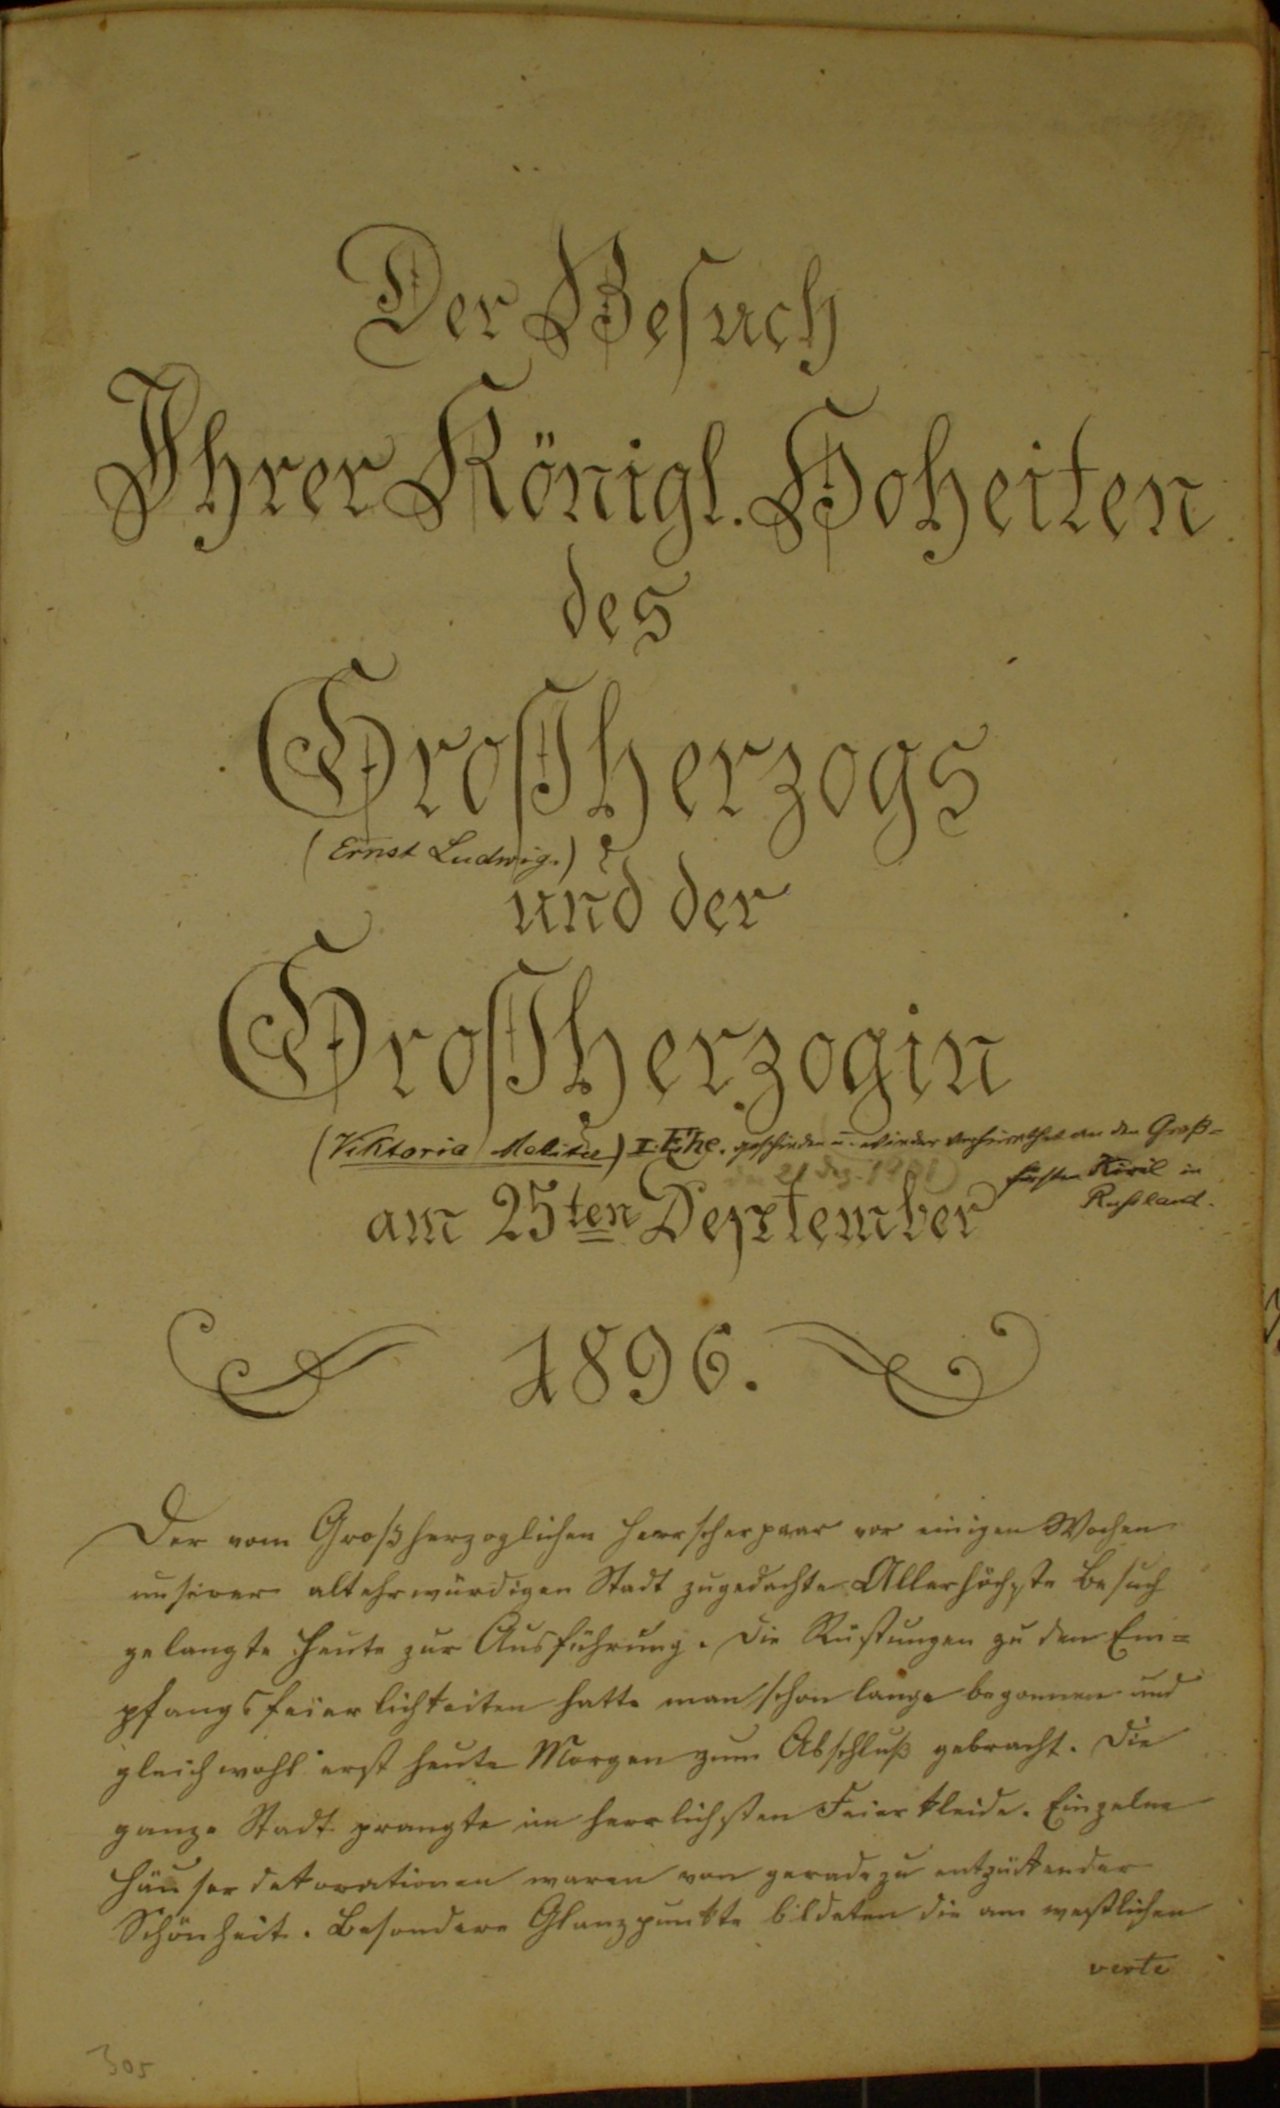 Der Besuch
Ihrer Königl. Hoheiten
des
Großherzogs
(Ernst Ludwig.)
und der
Großherzogin
(Viktoria Melitta) I. Ehe. geschieden u. wieder verheirathet an den Groß=
fürsten Kiril in
Rußland.
den 21 Dez. 1901)
am 25ten September
1896.
Der vom Großherzoglichen Herrscherpaar vor einigen Wochen
unserer altehrwürdigen Stadt zugedachte Allerhöchste Besuch
gelangte heute zur Ausführung. Die Rüstungen zu den Em=
pfangsfeierlichkeiten hatte man schon lange begonnen und
gleichwohl erst heute Morgen zum Abschluß gebracht. Die
ganze Stadt prangte im herrlichsten Feierkleide. Einzelne
Häuserdekorationen waren von geradezu entzückender
Schönheit. Besondere Glanzpunkte bildeten die am westlichen
verte
305